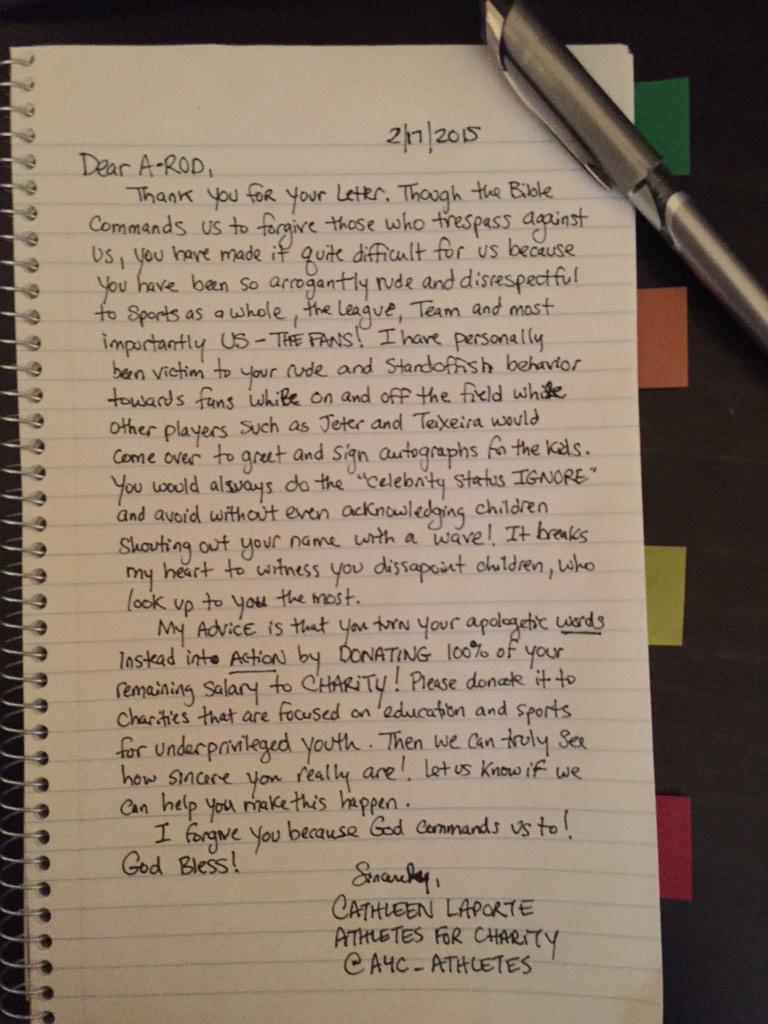 2/17/2015
Dear A-ROD,
Thank you for your Letter. Though the Bible
Commands us to forgive those who trespass against
us, you have made it quite difficult for us because
you have been so arrogantly rude and disrespectful
to Sports as a whole, the league, Team and most
importantly US - THE FANS! I have personally
been victim to your rude and Standoffish behavior
towards fans while on and off the field while
other players such as Jeter and Teixeira would
come over to greet and sign autographs for the kids.
You would always do the "Celebrity Status IGNORE"
and avoid without even acknowledging children
Shouting out your name with a wave! It breaks
my heart to witness you dissapoint children, who
look up to you the most.
My ADVICE is that you turn your apologetic words
Instead into ACTION by DONATING 100% of your
remaining Salary to CHARITY! Please donate it to
Charities that are focused on education and sports
for underprivileged youth. Then we can truly see
how sincere you really are! Let us know if we
can help you make this happen.
I forgive you because God commands us to!
God Bless!
Sincerely,
CATHLEEN LAPORTE
ATHLETES FOR CHARITY
@A4C_ATHLETES